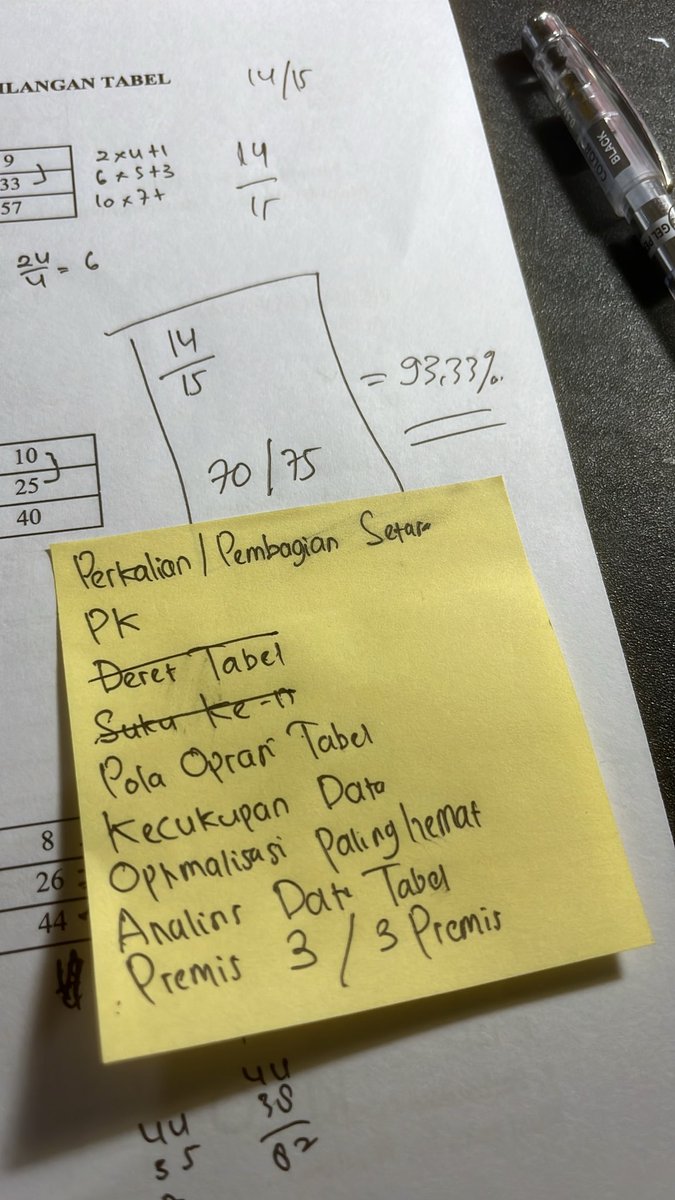 ILANGAN TABEL
14/15
9
33
57
2x4+1
6x5+3
10x7+
14
15
24
4 = 6
14
15
= 93,33%
70/75
10
25
40
Perkalian/Pembagian Setara
PK
Deret Tabel
Suku Ke-n
Pola Oprasi Tabel
Kecukupan Data
Optimalisasi Paling hemat
Analisis Data Tabel
Premis 3 / 3 Premis
8
26
44
44
35
44
38
82
BLACK
COLOR
GEL PE